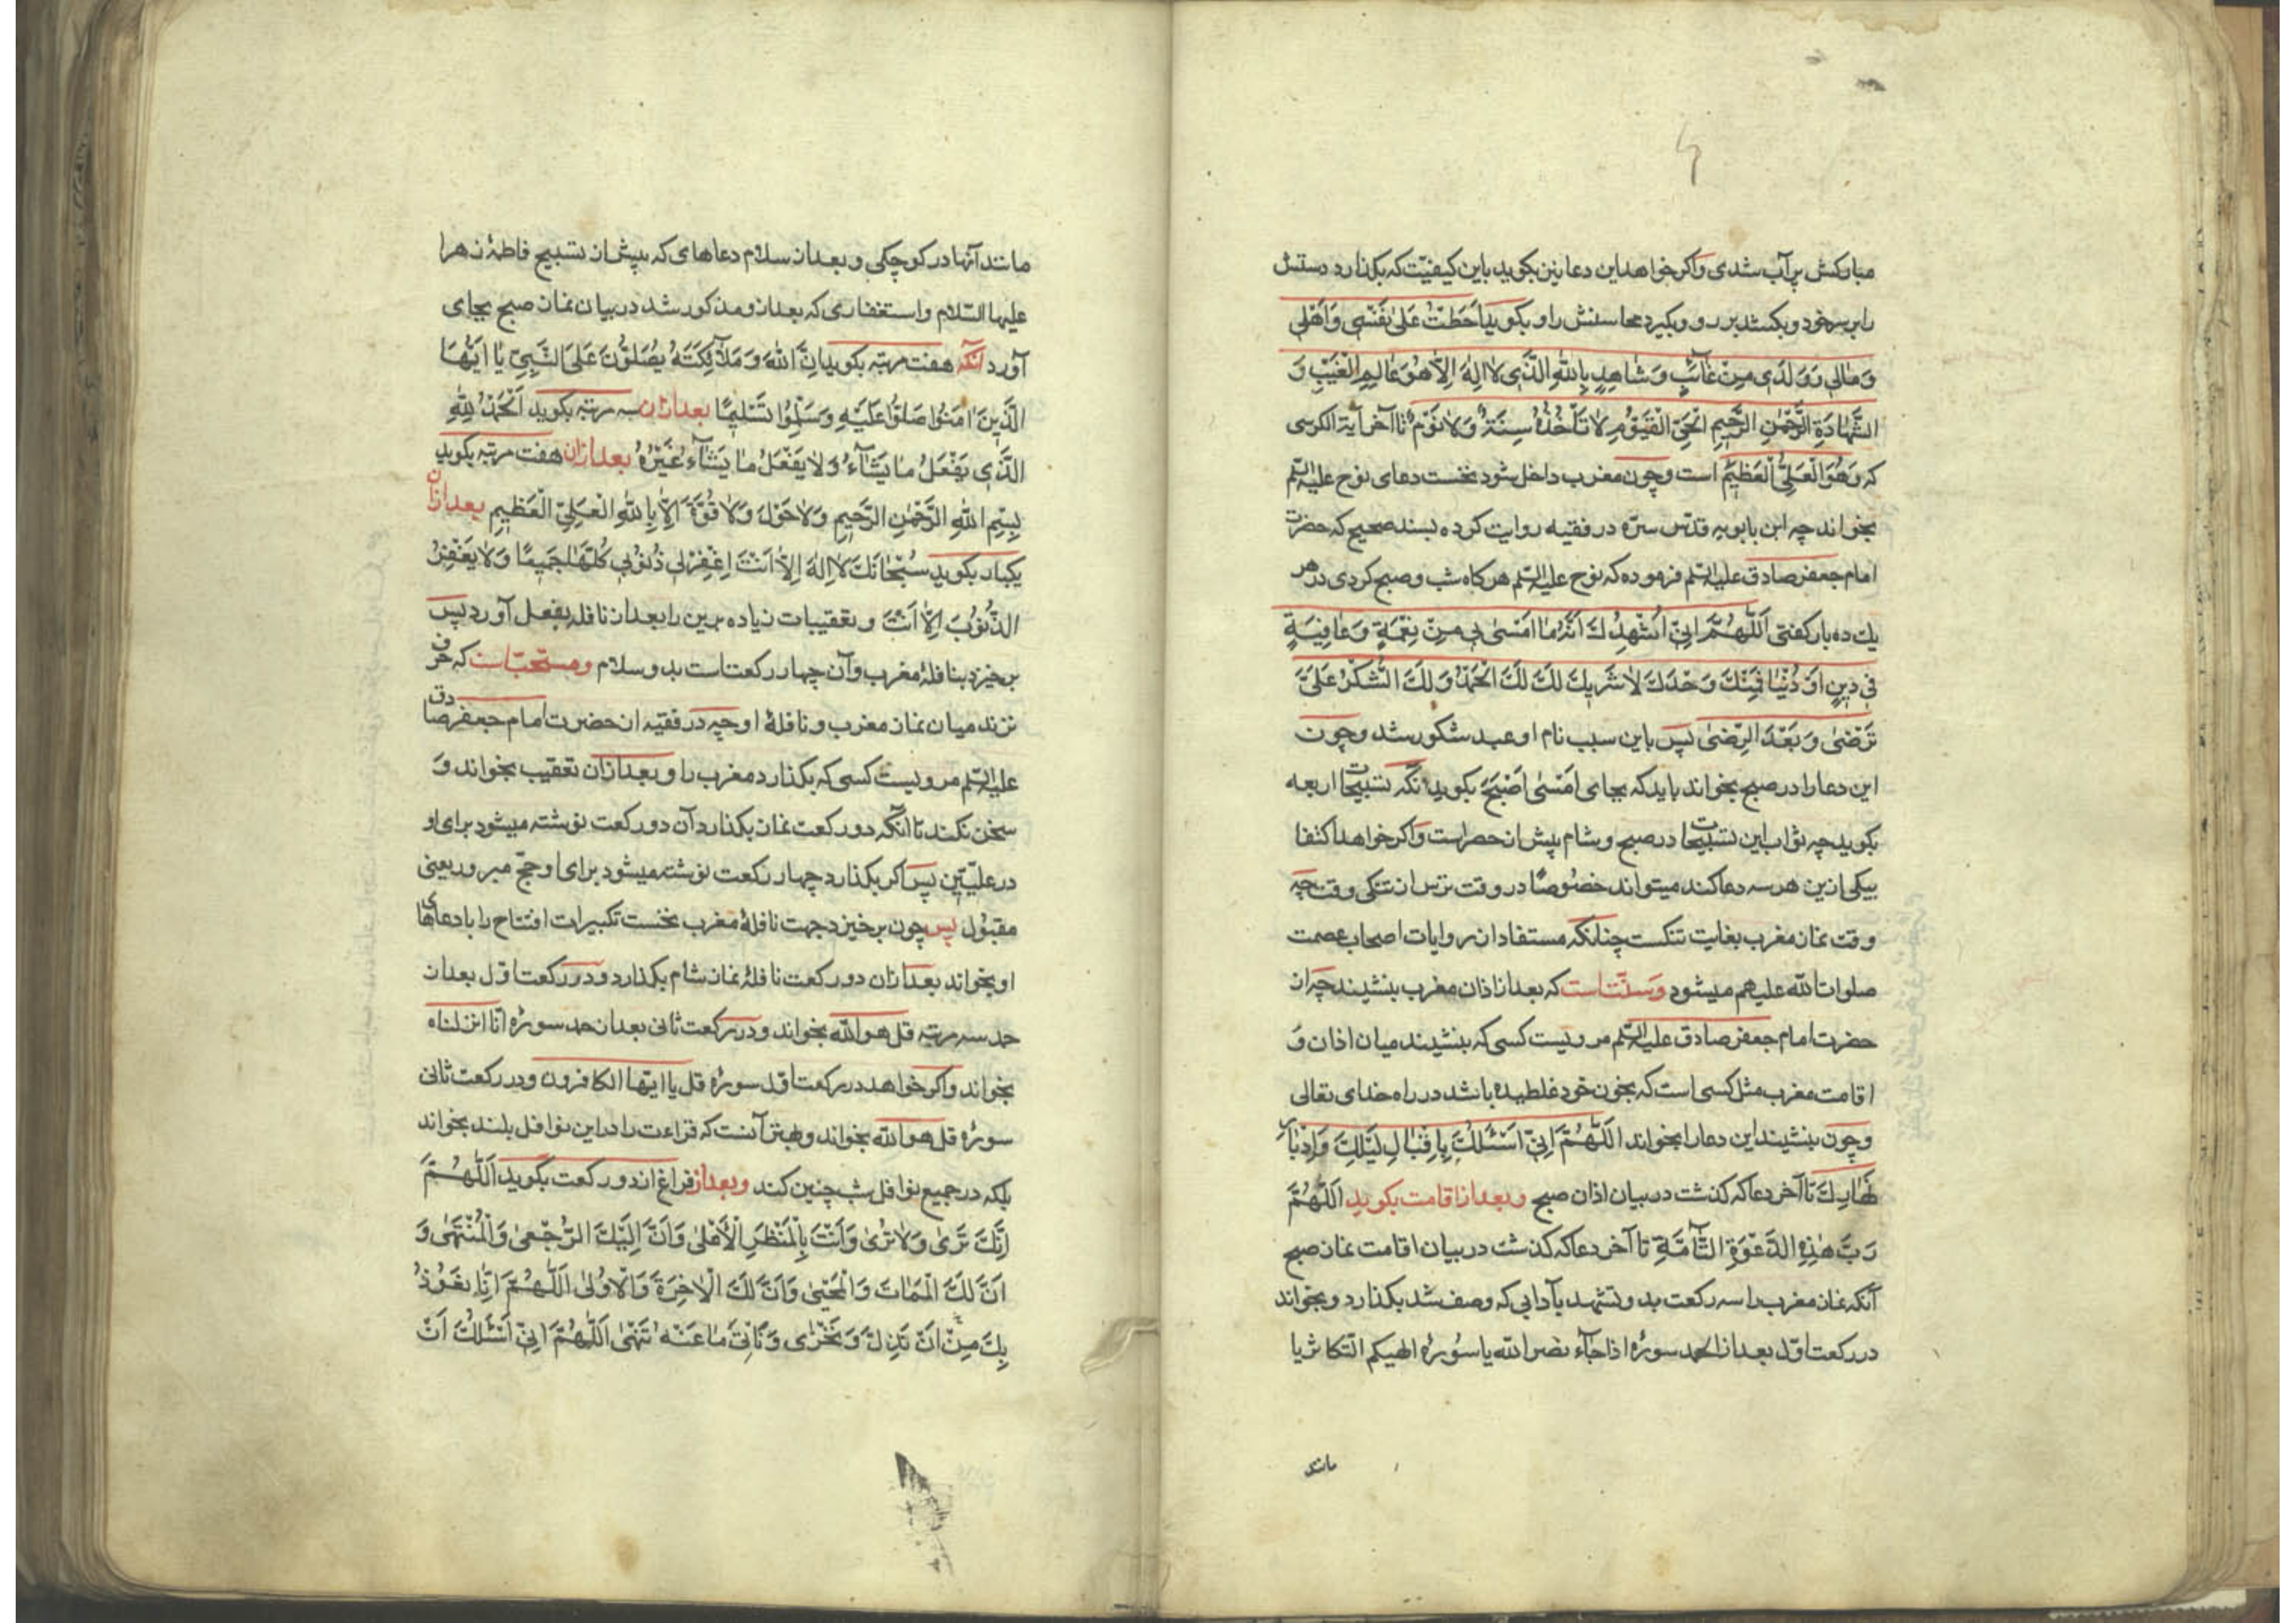 مباركش پر آب شدی واكر خواهد این دعا نیز بكوید باین كیفیّت كه بكذارد دستش
را بر سر خود و بكشد بر رو و بكیرد محاسنش را و بكوید اَحَطْتُ عَلىٰ نَفْسٖى وَاَهْلٖى
وَمٰالٖى وَوَلَدٖى مِنْ غٰآئِبٍ وَشٰاهِدٍ بِاللّٰهِ الَّذٖى لٰا اِلٰهَ اِلّٰا هُوَ عٰالِمِ الْغَيْبِ وَ
الشَّهٰادَةِ الرَّحْمٰنِ الرَّحٖيمِ الْحَىِّ الْقَيّٖومِ لٰا تَاْخُذُهُ سِنَةٌ وَلٰا نَوْمٌ تا آخر آیة الكرسی
كه وَهُوَ الْعَلِىُّ الْعَظٖيمُ است وچون مغرب داخل شود نخست دعای نوح علیه السّلم
بخواند چه ابن بابویه قدّس سرّه در فقیه روایت كرده بسند صحیح كه حضرت
امام جعفر صادق علیه السّلم فرموده كه نوح علیه السّلم هركاه شب و صبح كردی در هر
یك ده بار كفتی اَللّٰهُمَّ اِنّٖى اُشْهِدُكَ اَنَّهُ مٰا اَمْسٰى بٖى مِنْ نِعْمَةٍ وَعٰافِيَةٍ
فٖى دٖينٍ اَوْ دُنْيٰا فَمِنْكَ وَحْدَكَ لٰا شَرٖيكَ لَكَ لَكَ الْحَمْدُ وَلَكَ الشُّكْرُ عَلَىَّ
تَرْضٰى وَبَعْدَ الرِّضٰى پس باین سبب نام او عبد شكور شد وچون
این دعا را در صبح بخواند باید كه بجای اَمْسٰى اَصْبَحَ بكوید آنكه تسبیحات اربعه
بكوید چه ثواب این تسبیحات در صبح و شام پیش از حصر است واكر خواهد اكتفا
بیكی ازین هر سه دعا كند میتواند خصُوصًا در وقت ترس از تنكی وقت چه
وقت نماز مغرب بغایت تنكست چنانكه مستفاد از روایات اصحاب عصمت
صلوات الله علیهم میشود وسنّتست كه بعد از اذان مغرب بنشیند چه از
حضرت امام جعفر صادق علیه السّلم مرویست كسی كه بنشیند میان اذان وَ
اقامت مغرب مثل كسی است كه بخون خود غلطیده باشد در راه خدای تعالی
وچون بنشیند این دعا را بخواند اَللّٰهُمَّ اِنّٖى اَسْئَلُكَ بِاِقْبٰالِ لَيْلِكَ وَاِدْبٰارِ
نَهٰارِكَ تا آخر دعا كه كذشت در بیان اذان صبح وبعد از اقامت بكوید اَللّٰهُمَّ
رَبَّ هٰذِهِ الدَّعْوَةِ التّٰآمَّةِ تا آخر دعا كه كذشت در بیان اقامت نماز صبح
آنكه نماز مغرب را سه ركعت بدو تشهد بآدابی كه وصف شد بكذارد و بخواند
در ركعت اوّل بعد از الحمد سورهٔ اذا جآء نصر الله یا سُورهٔ الهیكم التّكاثر یا
مانند
مانند آنها در كوچكی و بعد از سلام دعاهای كه پیش از تسبیح فاطمهٔ زهرا
علیها السّلام واستغفاری كه بعد ازو مذكور شد در بیان نماز صبح بجای
آورد آنكه هفت مرتبه بكوید اِنَّ اللّٰهَ وَمَلٰآئِكَتَهُ يُصَلُّونَ عَلَى النَّبِىِّ يٰا اَيُّهَا
الَّذٖينَ اٰمَنُوا صَلُّوا عَلَيْهِ وَسَلِّمُوا تَسْلٖيمًا بعد ازان سه مرتبه بكوید اَلْحَمْدُ لِلّٰهِ
الَّذٖى يَفْعَلُ مٰا يَشٰآءُ وَلٰا يَفْعَلُ مٰا يَشٰآءُ غَيْرُهُ بعد ازان هفت مرتبه بكوید
بِسْمِ اللّٰهِ الرَّحْمٰنِ الرَّحٖيمِ وَلٰا حَوْلَ وَلٰا قُوَّةَ اِلّٰا بِاللّٰهِ الْعَلِىِّ الْعَظٖيمِ بعد ازان
یكبار بكوید سُبْحٰانَكَ لٰا اِلٰهَ اِلّٰا اَنْتَ اِغْفِرْ لٖى ذُنُوبٖى كُلَّهٰا جَمٖيعًا وَلٰا يَغْفِرُ
الذُّنُوبَ اِلّٰا اَنْتَ و تعقیبات زیاده برین را بعد از نافله بفعل آورد پس
برخیزد بنافلهٔ مغرب وآن چهار ركعتست بدو سلام ومستحبّست كه حرف
نزند میان نماز مغرب و نافلهٔ او چه در فقیه از حضرت امام جعفر صادق
علیه السّلم مرویست كسی كه بكذارد مغرب را و بعد ازان تعقیب بخواند وَ
سخن نكند تا آنكه دو ركعت نماز بكذارد آن دو ركعت نوشته میشود برای او
در علیّین پس اكر بكذارد چهار ركعت نوشته میشود برای او حجّ مبرور یعنی
مقبُول پس چون برخیزد جهت نافلهٔ مغرب نخست تكبیرات افتتاح را با دعاهای
او بخواند بعد ازان دو ركعت نافلهٔ نماز شام بكذارد و در ركعت اوّل بعد از
حمد سه مرتبه قل هو الله بخواند و در ركعت ثانی بعد از حمد سورهٔ انّا انزلناه
بخواند واكر خواهد در ركعت اوّل سورهٔ قل یا ایّها الكافرون و در ركعت ثانی
سورهٔ قل هو الله بخواند وبهتر آنست كه قراءت را در این نوافل بلند بخواند
بلكه در جمیع نوافل شب چنین كند وبعد از فراغ از دو ركعت بگوید اَللّٰهُمَّ
اِنَّكَ تَرٰى وَلٰا تُرٰى وَاَنْتَ بِالْمَنْظَرِ الْاَعْلٰى وَاَنَّ اِلَيْكَ الرُّجْعٰى وَالْمُنْتَهٰى وَ
اَنَّ لَكَ الْمَمٰاتَ وَالْمَحْيٰى وَاَنَّ لَكَ الْاٰخِرَةَ وَالْاُولٰى اَللّٰهُمَّ اِنّٰا نَعُوذُ
بِكَ مِنْ اَنْ نَذِلَّ وَنَخْزٰى وَنَاْتِىَ مٰا عَنْهُ تَنْهٰى اَللّٰهُمَّ اِنّٖى اَسْئَلُكَ اَنْ